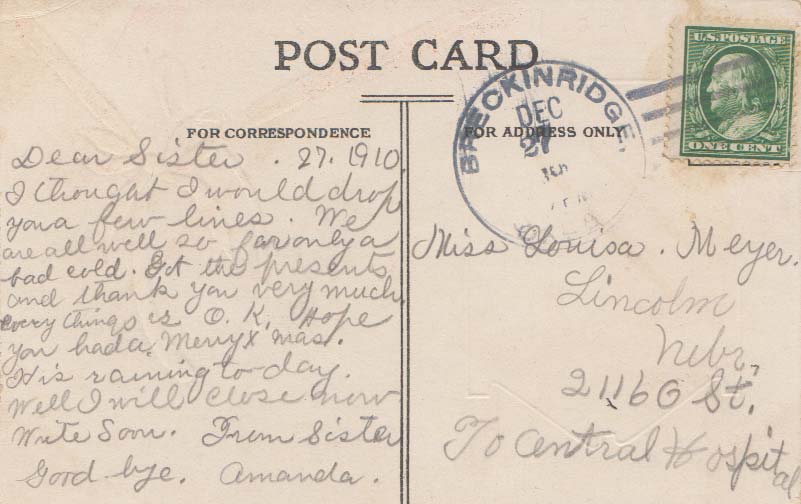 POST CARD
FOR CORRESPONDENCE
FOR ADDRESS ONLY
U.S. POSTAGE
ONE CENT
BRECKINRIDGE,
DEC
27
Dear Sister . 27. 1910.
I thought I would drop
you a few lines. We
are all well so far only a
bad cold. Got the presents
and thank you very much.
every things is O. K. Hope
you had a Merry X mas.
It is raining to day.
Well I will close now
Write Soon. From Sister
Good bye. Amanda.
Miss Louisa. Meyer.
Lincoln
Nebr,
2116 O St.
To Central Hospital